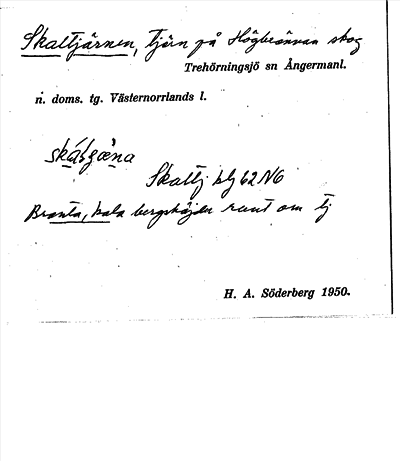 Skaltjärnen, tjärn på Högbrännan skog
Trehörningsjö sn Ångermanl.
n. doms. tg. Västernorrlands l.
Skaltj. blg 62 N6
Branta, kala bergshöjder runt om tj
H. A. Söderberg 1950.